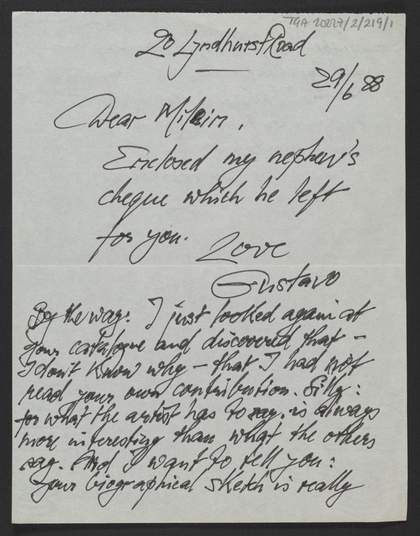 TGA 20027/2/219/1
20 Lyndhurst Road
29/6 88
Dear
Enclosed my nephew's
cheque which he left
for you.
Love
Gustavo
By the way: I just looked again at
your catalogue and discovered that –
I don't know why – that I had not
read your own contribution. Silly:
for what the artist has to say, is always
more interesting than what the others
say. And I want to tell you:
Your biographical sketch is really